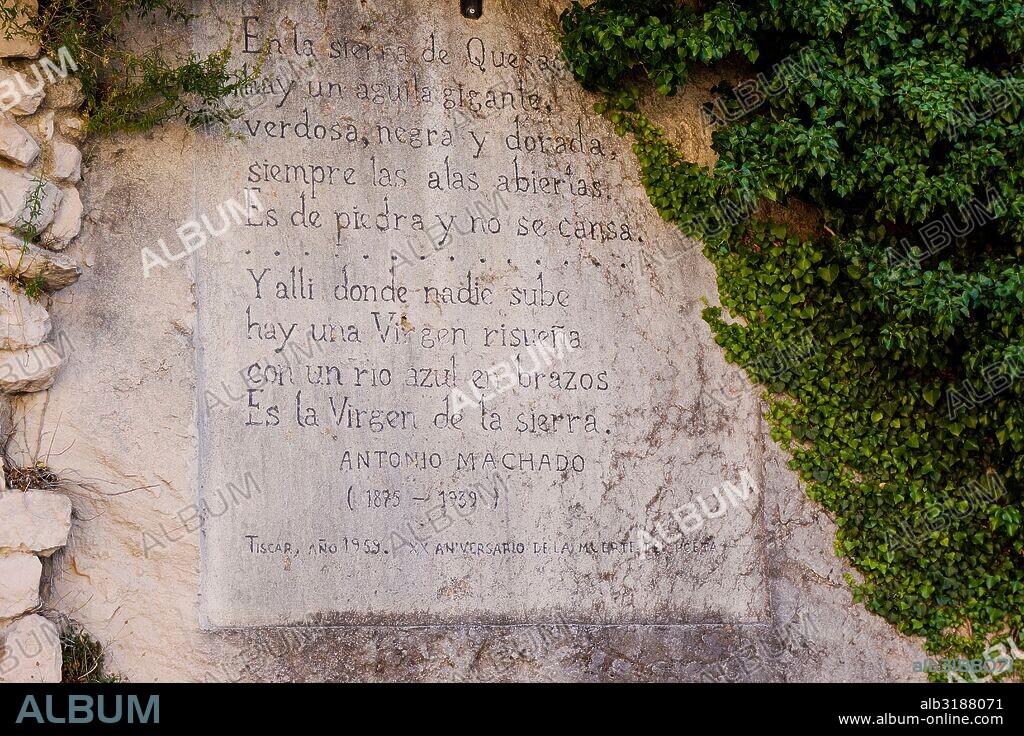 En la sierra de Quesa
hay un aguila gigante,
verdosa, negra y dorada,
siempre las alas abiertas.
Es de piedra y no se cansa.
. . . . . . . . . . . . . .
Y alli donde nadie sube
hay una Virgen risueña
con un rio azul en brazos
Es la Virgen de la sierra.
ANTONIO MACHADO
( 1875 - 1939 )
TISCAR, AÑO 1959. XX ANIVERSARIO DE LA MUERTE DEL POETA
ALBUM
alb3188071
ALBUM
alb3188071
www.album-online.com